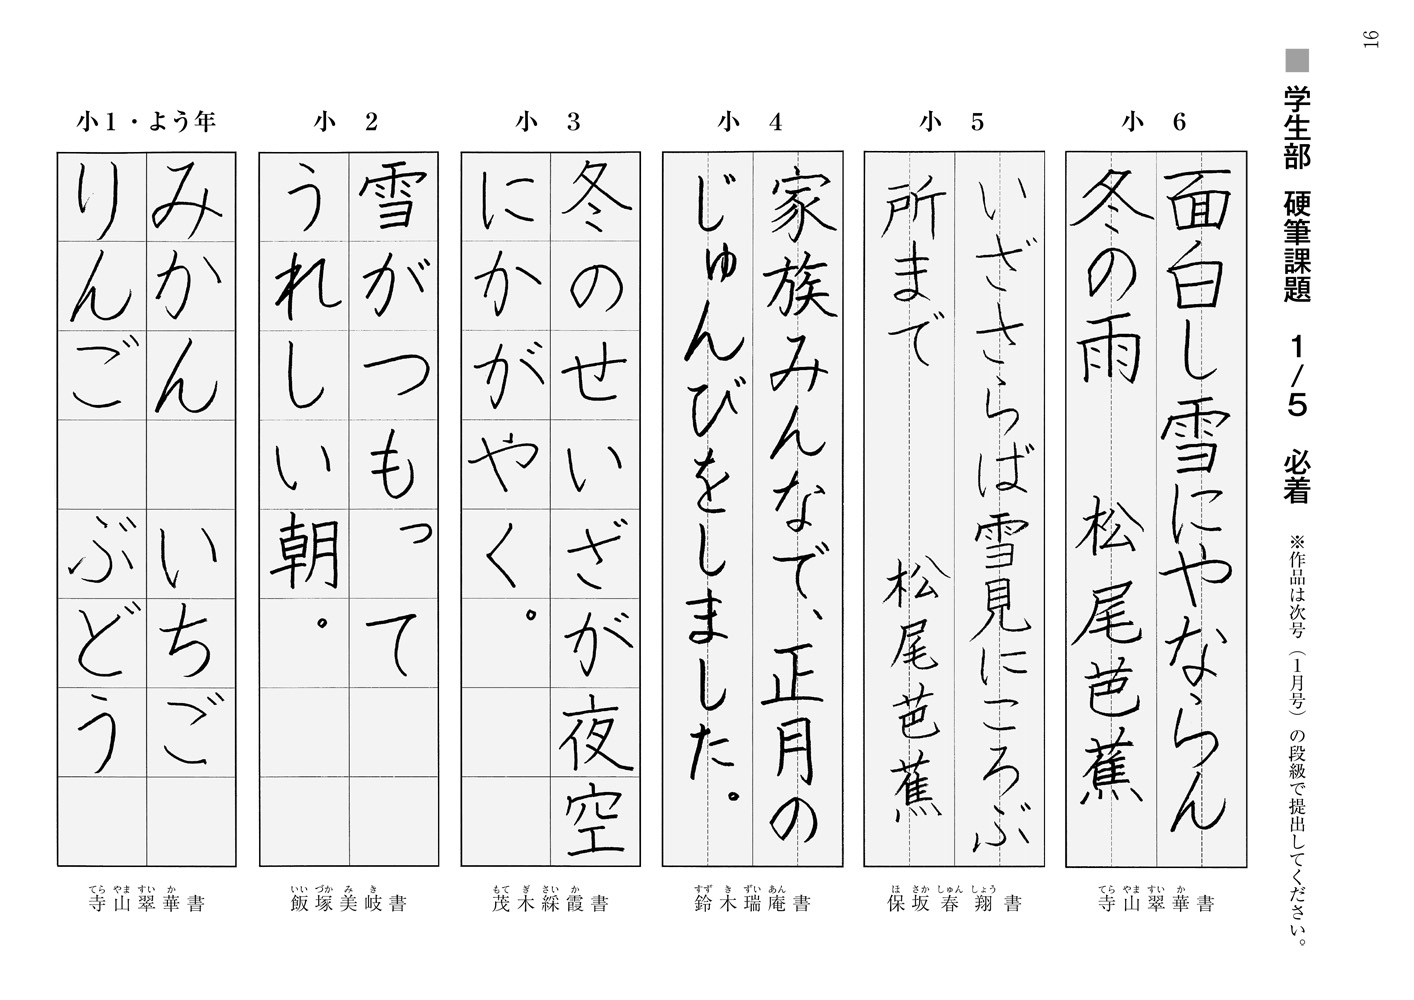 16
■ 学生部 硬筆課題 1/5 必着 ※作品は次号（1月号）の段級で提出してください。
小 6
面白し雪にやならん
冬の雨 松尾芭蕉
寺山翠華書
てら やま すい か
小 5
いざさらば雪見にころぶ
所まで 松尾芭蕉
保坂春翔書
ほ さか しゅん しょう
小 4
家族みんなで、正月の
じゅんびをしました。
鈴木瑞庵書
すず き ずい あん
小 3
冬のせいざが夜空
にかがやく。
茂木綵霞書
もて ぎ さい か
小 2
雪がつもって
うれしい朝。
飯塚美岐書
いい づか み き
小1・よう年
みかん いちご
りんご ぶどう
寺山翠華書
てら やま すい か